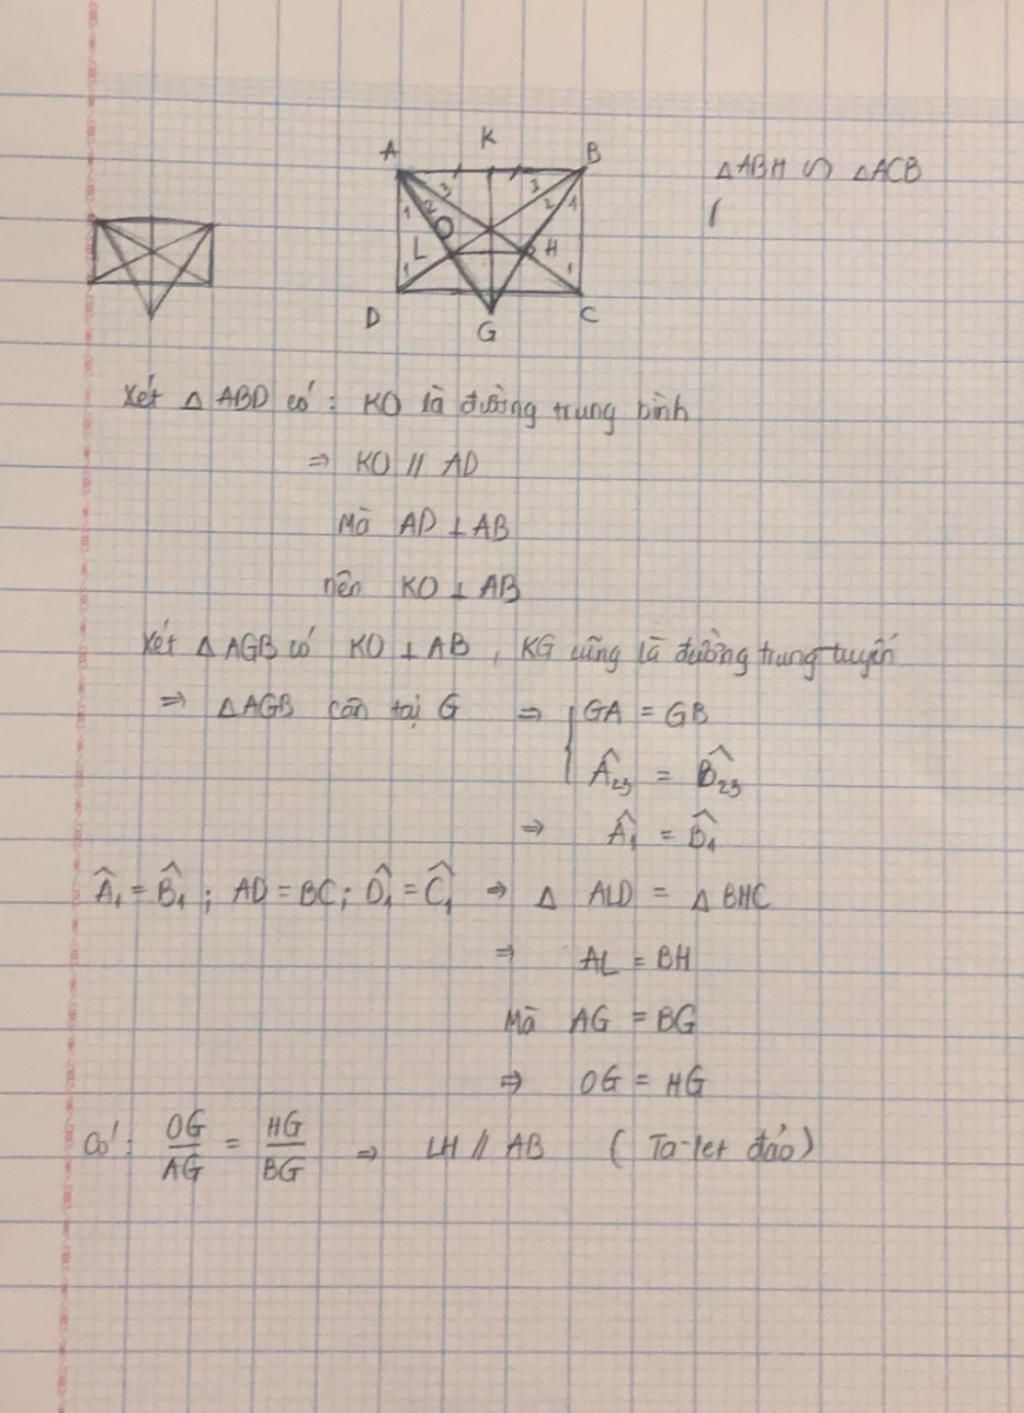 K
A
B
3
3
1
2
2
1
O
L
H
1
1
D
G
C
△ABH ∽ △ACB
(
Xét △ ABD có: KO là đường trung bình
⇒ KO // AD
Mà AD ⊥ AB
nên KO ⊥ AB
Xét △ AGB có KO ⊥ AB, KG cũng là đường trung tuyến
⇒ △AGB cân tại G ⇒ { GA = GB
Â₂₃ = B̂₂₃
⇒ Â₁ = B̂₁
Â₁ = B̂₁; AD = BC; D̂₁ = Ĉ₁ ⇒ △ ALD = △ BHC
⇒ AL = BH
Mà AG = BG
⇒ OG = HG
Có: OG/AG = HG/BG ⇒ LH // AB (Ta-let đảo)